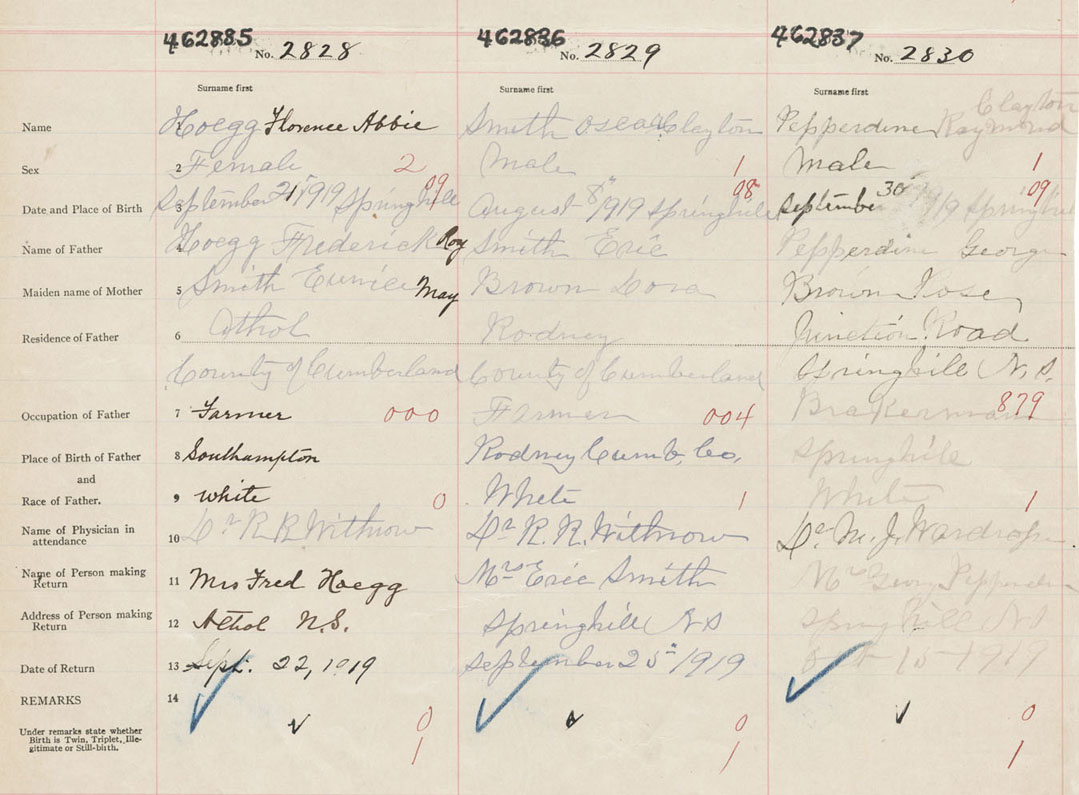 462885 462836 462837
No. 2828 No. 2829 No. 2830
Surname first Surname first Surname first
Name 1 Hoegg Florence Abbie Smith Oscar Clayton Pepperdine Raymond Clayton
Sex 2 Female 2 Male 1 Male 1
Date and Place of Birth 3 September 21 1919 Springhill 09 August 8" 1919 Springhill 08 September 30 1919 Springhill 09
Name of Father 4 Hoegg Frederick Roy Smith Eric Pepperdine George
Maiden name of Mother 5 Smith Eunice May Brown Dora Brown Rose
Residence of Father 6 Athol Rodney Junction Road
County of Cumberland County of Cumberland Springhill N.S.
Occupation of Father 7 Farmer 000 Farmer 004 Brakeman 879
Place of Birth of Father 8 Southampton Rodney Cumb. Co. Springhill
and
Race of Father. 9 White 0 White 1 White 1
Name of Physician in attendance 10 Dr R R Withrow Dr R. R. Withrow Dr M. J. Wardrope
Name of Person making Return 11 Mrs Fred Hoegg Mrs Eric Smith Mrs George Pepperdine
Address of Person making Return 12 Athol N.S. Springhill N S Springhill N S
Date of Return 13 Sept. 22, 1919 September 25" 1919 15 1919
REMARKS 14
Under remarks state whether Birth is Twin, Triplet, Ille-
gitimate or Still-birth.
0 0 0
1 1 1